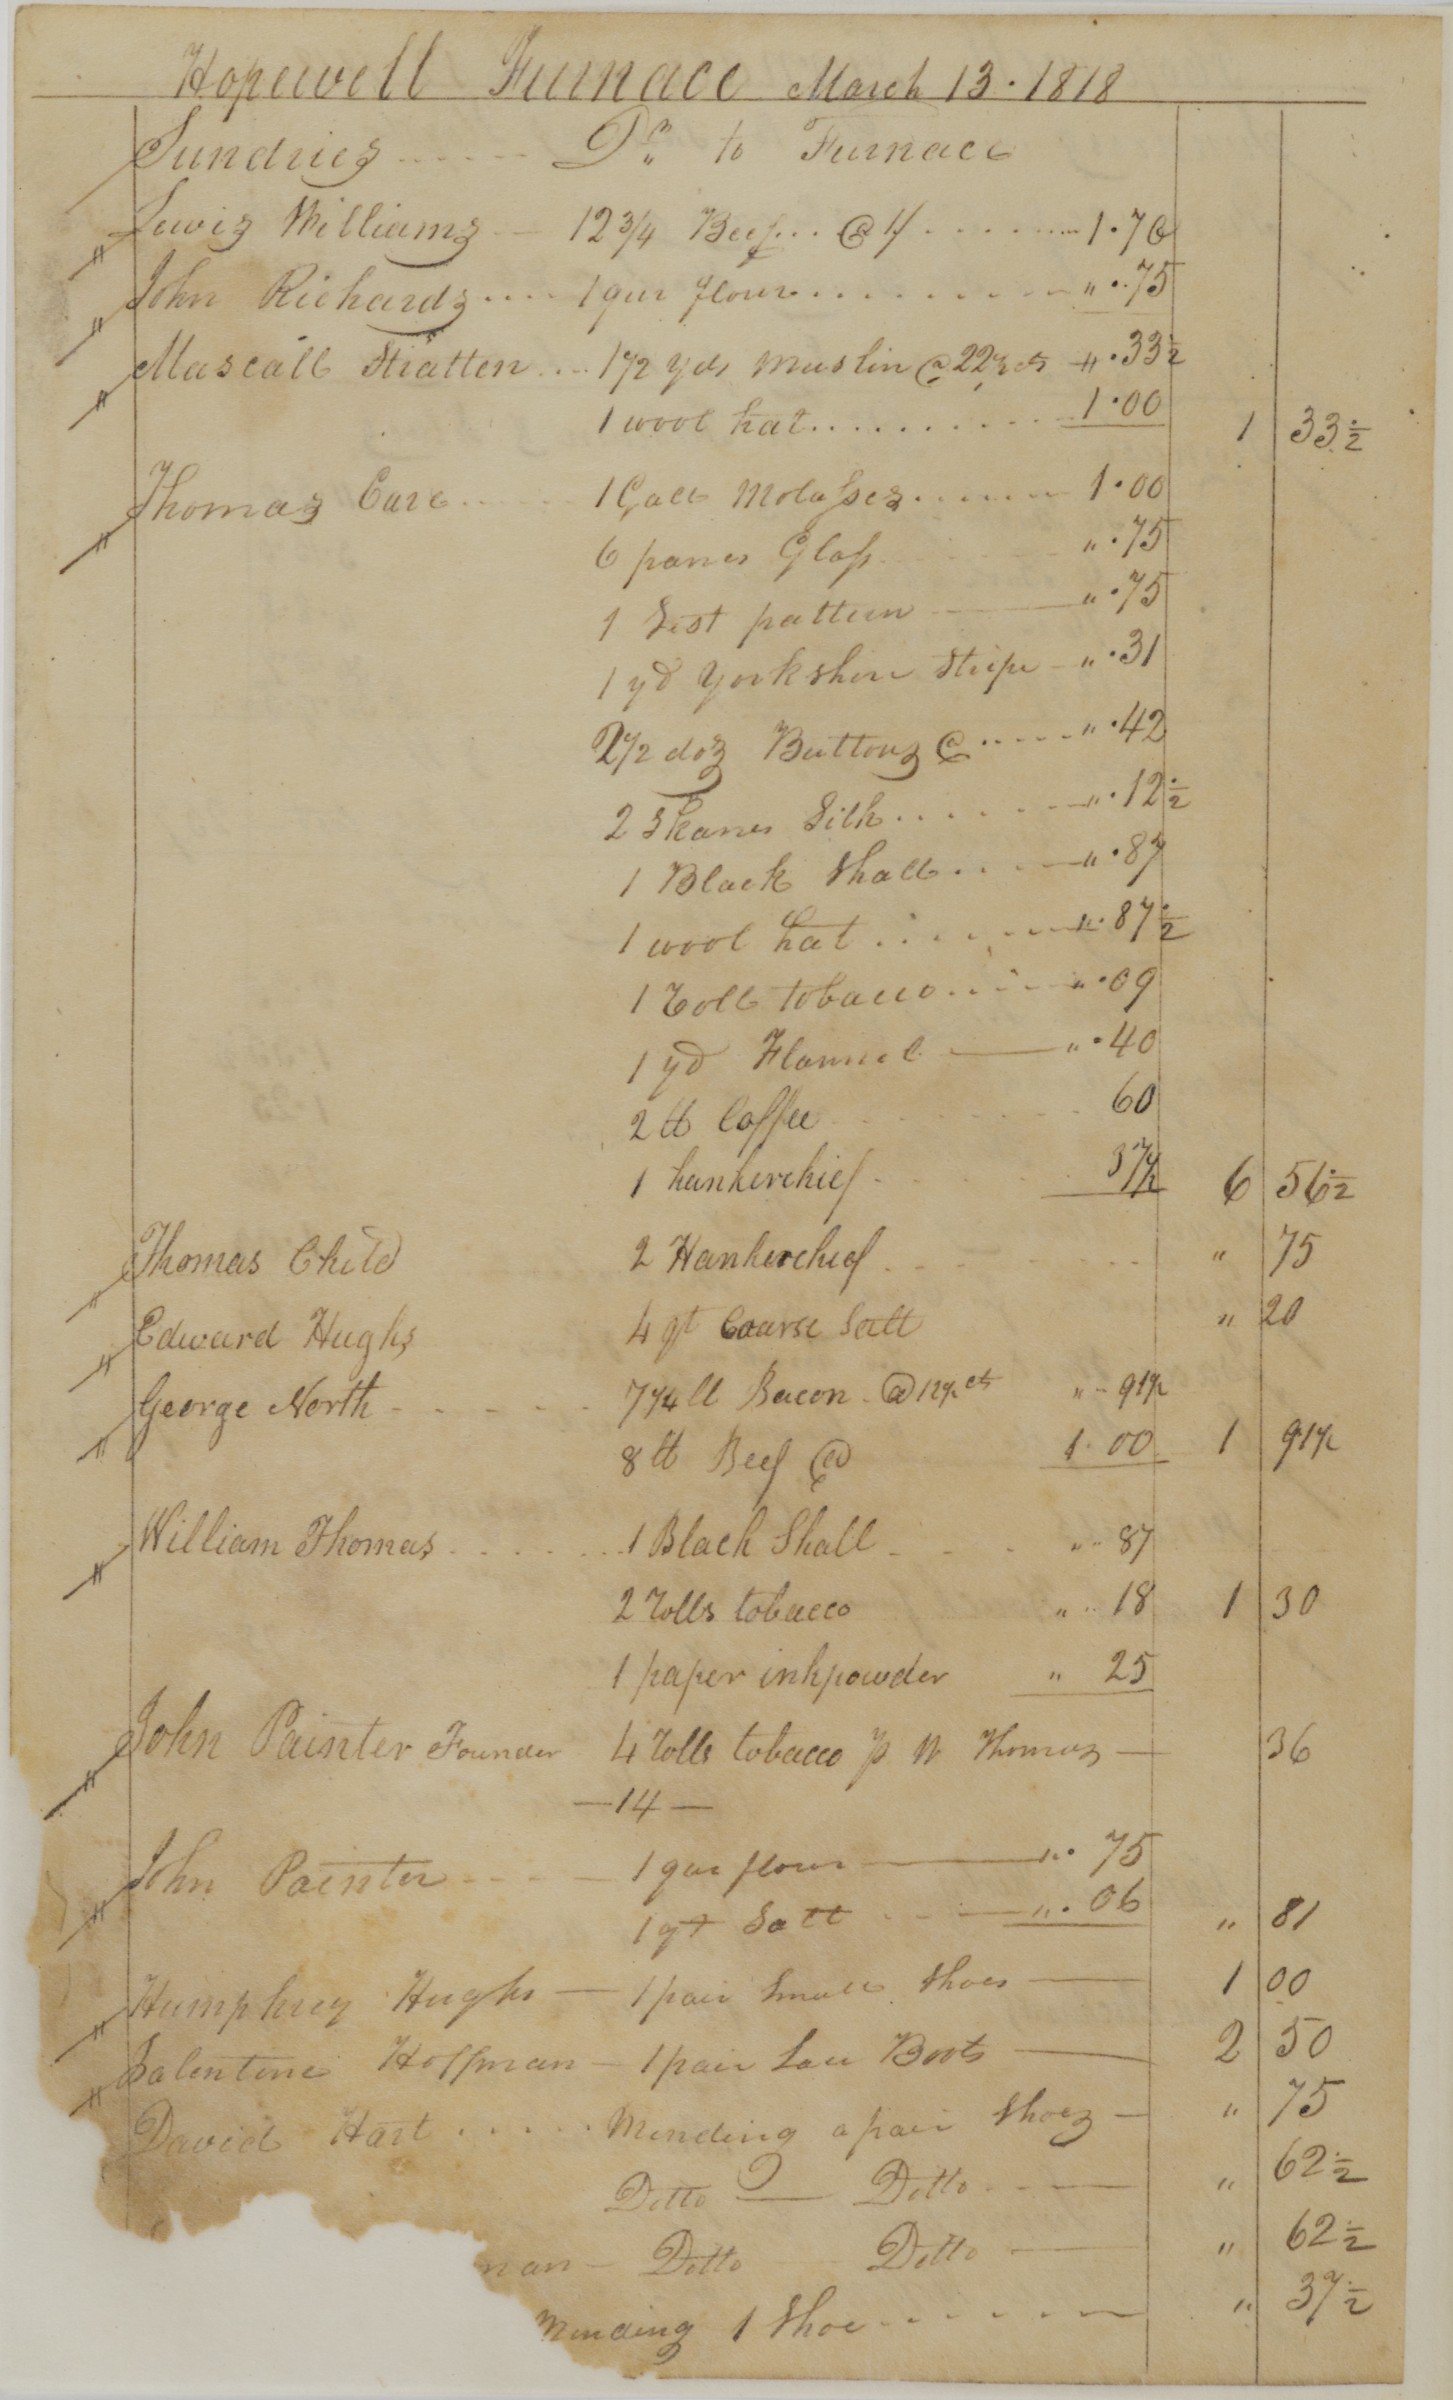 Hopewell Furnace March 13 · 1818
Sundries ...... Dr. to Furnace
Lewis Williams — 12 3/4 Beef... @ 1/ ........ 1.76
John Richards .... 1 qur flour .......... " . 75
Mascall Stratten .... 1 1/2 yds muslin @ 22 1/2 cts " . 33 1/2
1 wool hat .......... 1.00 1 33 1/2
Thomas Care ...... 1 Gall Molasses ...... 1.00
6 panes Glass " . 75
1 Vest pattern — " . 75
1 yd Yorkshire Stripe — " . 31
2 1/2 doz Buttons @ ..... " . 42
2 Skanes Silk ...... " . 12 1/2
1 Black Shall .... " . 87
1 wool hat ...... " . 87 1/2
1 Toll tobacco ..... " . 09
1 yd Flannel — " . 40
2 lb Coffee 60
1 hankerchief 37 1/2 6 56 1/2
Thomas Child 2 Hankerchief " 75
Edward Hughs 4 qt Coarse Salt " 20
George North - - - - - 7 1/4 lb Bacon - @ 12 1/2 cts " .. 91 1/2
8 lb Beef @ 1.00 1 91 1/2
William Thomas ...... 1 Black Shall - - - " .. 87
2 Tolls tobacco " .. 18 1 30
1 paper inkpowder " 25
John Painter Founder 4 Tolls tobacco p W Thomas — 36
— 14 —
John Painter - - - - 1 qur flour — " . 75
1 qt Salt - - — " . 06 " 81
Humphrey Hughs — 1 pair Small Shoes — 1 00
Valentine Hoffman — 1 pair Lace Boots — 2 50
David Hart ..... Mending a pair Shoes — " 75
Ditto — Ditto - - — " 62 1/2
man — Ditto Ditto — " 62 1/2
Mending 1 Shoe - - - - - " 37 1/2